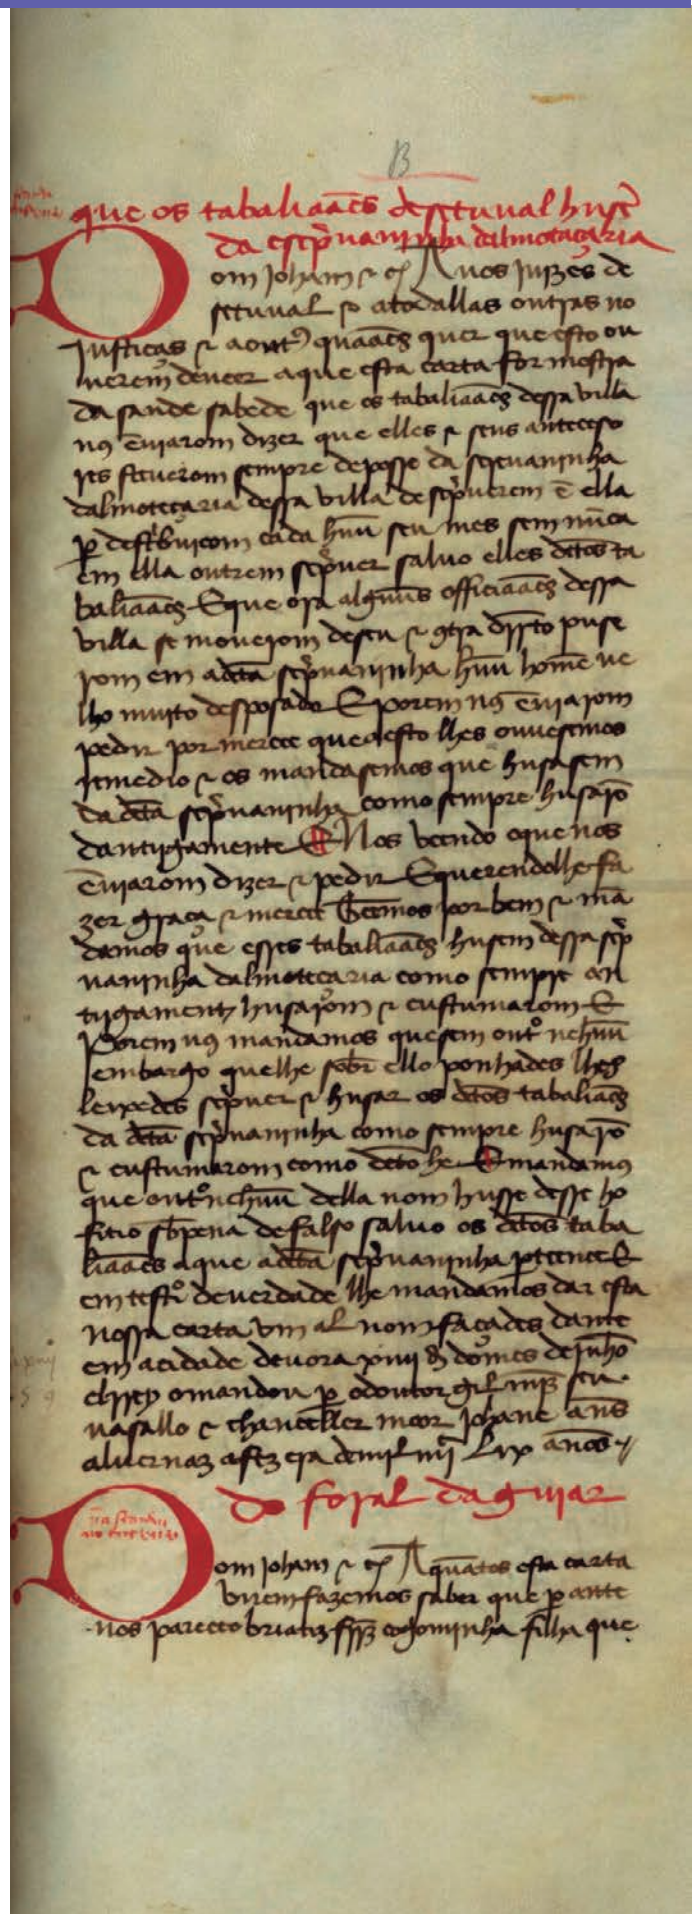 B
que os tabaliaães de setuual husẽ
da escpriuaninha dalmotaçaria
Dom Joham & cᵃ A uos Juizes de
setuual & a todallas outras no
Justiças & a outᵒˢ quaaẽs quer que esto ou
uerem de ueer a que esta carta for mostra
da saude sabede que os tabaliaães dessa villa
nos ẽuiarom dizer que elles & seus anteceso
res steuerom sempre de posse da scpriuaninha
dalmotaçaria dessa villa de scpreuerem ẽ ella
ꝑ destribuicom cada huũ seu mes sem nũca
em ella outrem scpreuer saluo elles dc̃tos ta
baliaães E que ora alguũs officiaães dessa
villa se mouerom de seu & 9tra dirr̃to puse
rom em a dc̃ta scpriuaninha huũ home ue
lho muito desposado E porem nos ẽuiarom
pedir por merece que a esto lhes ouuesemos
remedio & os mandasemos que husasem
da dc̃ta scpriuaninha como sempre husarõ
dantijgamente E Nos veendo o que nos
ẽuiarom dizer & pedir E querendolhe fa
zer graça & mercee Teemos por bem & mã
damos que esses tabaliaães husem dessa scpri
uaninha dalmotaçaria como sempre an
tijgamente husarom & custumarom E
Porem uos mandamos que sem outᵒ nehuũ
embargo que lhe sobre ello ponhades lhes
leixedes scpreuer & husar os dc̃tos tabaliaães
da dc̃ta scpriuaninha como sempre husarõ
& custumarom como dc̃to he E mandamos
que outᵒ nehuũ della nom husse desse ho
ficio so pena de falso saluo os dc̃tos taba
liaães a que a dc̃ta scpriuaninha ꝑteence E
em testᵒ de uerdade lhe mandamos dar esta
nossa carta vm al nom façades dante
em a cidade deuora xiiij ds do mes de Junho
elrrey o mandou ꝑ o doutor gil mĩz seu
uasallo & chanceller moor Johane añs
aluernaz a fez era de mil iiij Lix anos
Do foral daguiar
Dom Joham & cᵃ A quãtos esta carta
virem fazemos saber que ꝑ ante
nos pareceo briatiz frz cogominha filha que